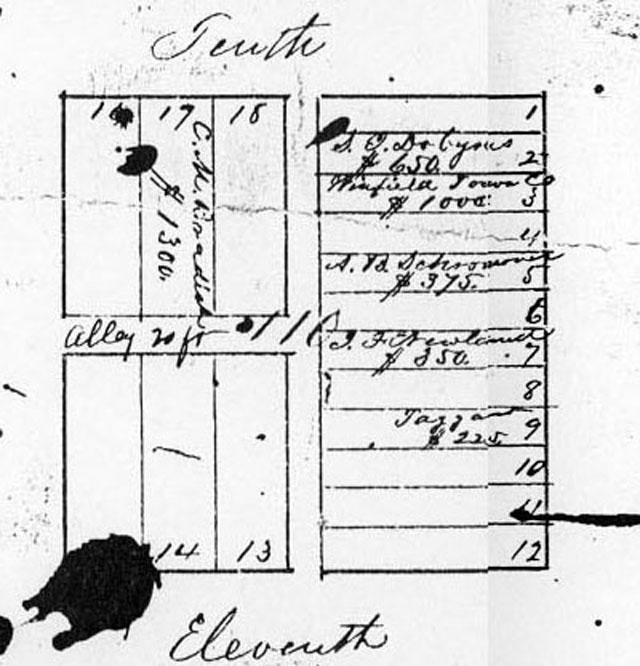 Tenth
16 17 18
C. M.
$ 1300.
1
2
$ 650.
Winfield Town Co
3
$ 1000.
4
5
$ 375.
6
Alley 20 ft 110
J. F. Newland
7
$ 350.
8
9
$ 225.
10
11
12
14 13
Eleventh